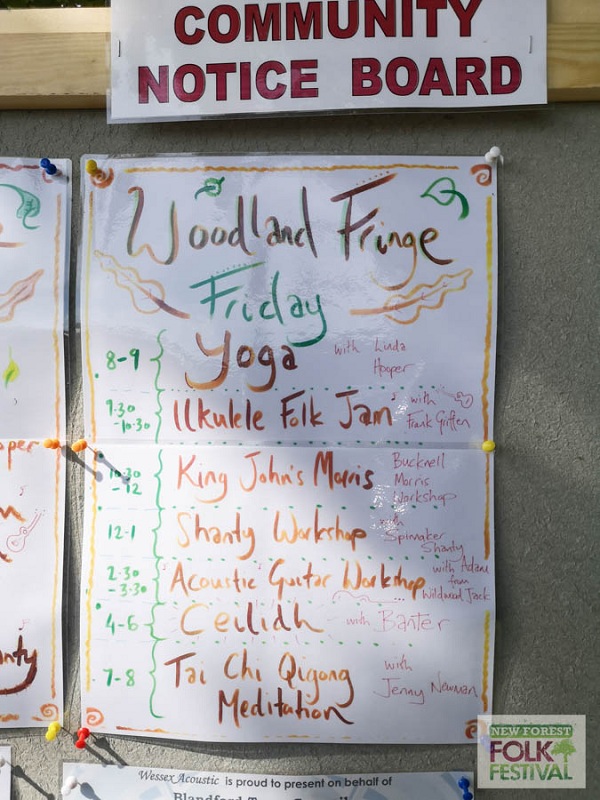 COMMUNITY
NOTICE BOARD
Woodland Fringe
Friday
8-9 Yoga with Linda
Hooper
9.30
-10.30 Ukulele Folk Jam with
Frank Griffen
10.30
-12 King John's Morris Bucknell
Morris
Workshop
12-1 Shanty Workshop with
Spinnaker
Shanty
2.30
-3.30 Acoustic Guitar Workshop with Adam
from
Wildwood Jack
4-6 Ceilidh with Banter
7-8 Tai Chi Qigong
Meditation with
Jenny Newman
Wessex Acoustic is proud to present on behalf of
NEW FOREST
FOLK
FESTIVAL